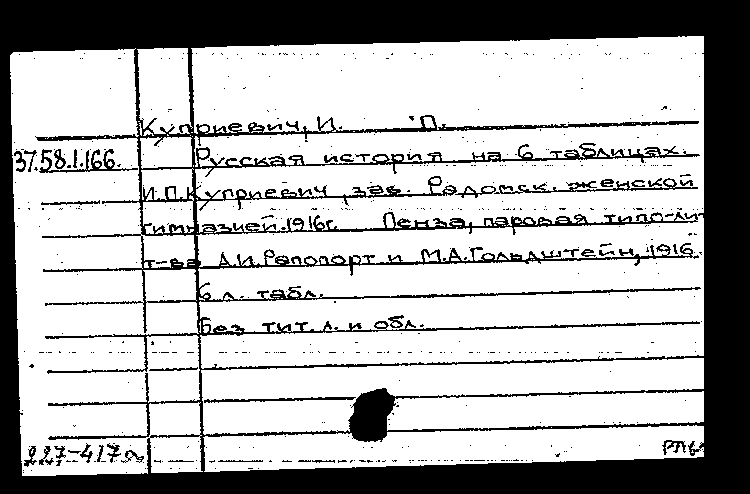 Куприевич, И. П.
37.58.1.166. Русская история на 6 таблицах.
И.П.Куприевич, зав. Радомск. женской
гимназией. 1916г. Пенза, паровая типо-лит
т-ва А.И.Рапопорт и М.А.Гольдштейн, 1916.
6 л. табл.
Без тит. л. и обл.
227-417